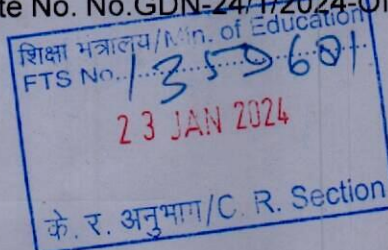 te No. No.GDN-24/1/2024-O
शिक्षा मंत्रालय/Min. of Education
FTS No. 1359601
23 JAN 2024
के. र. अनुभाग/C. R. Section